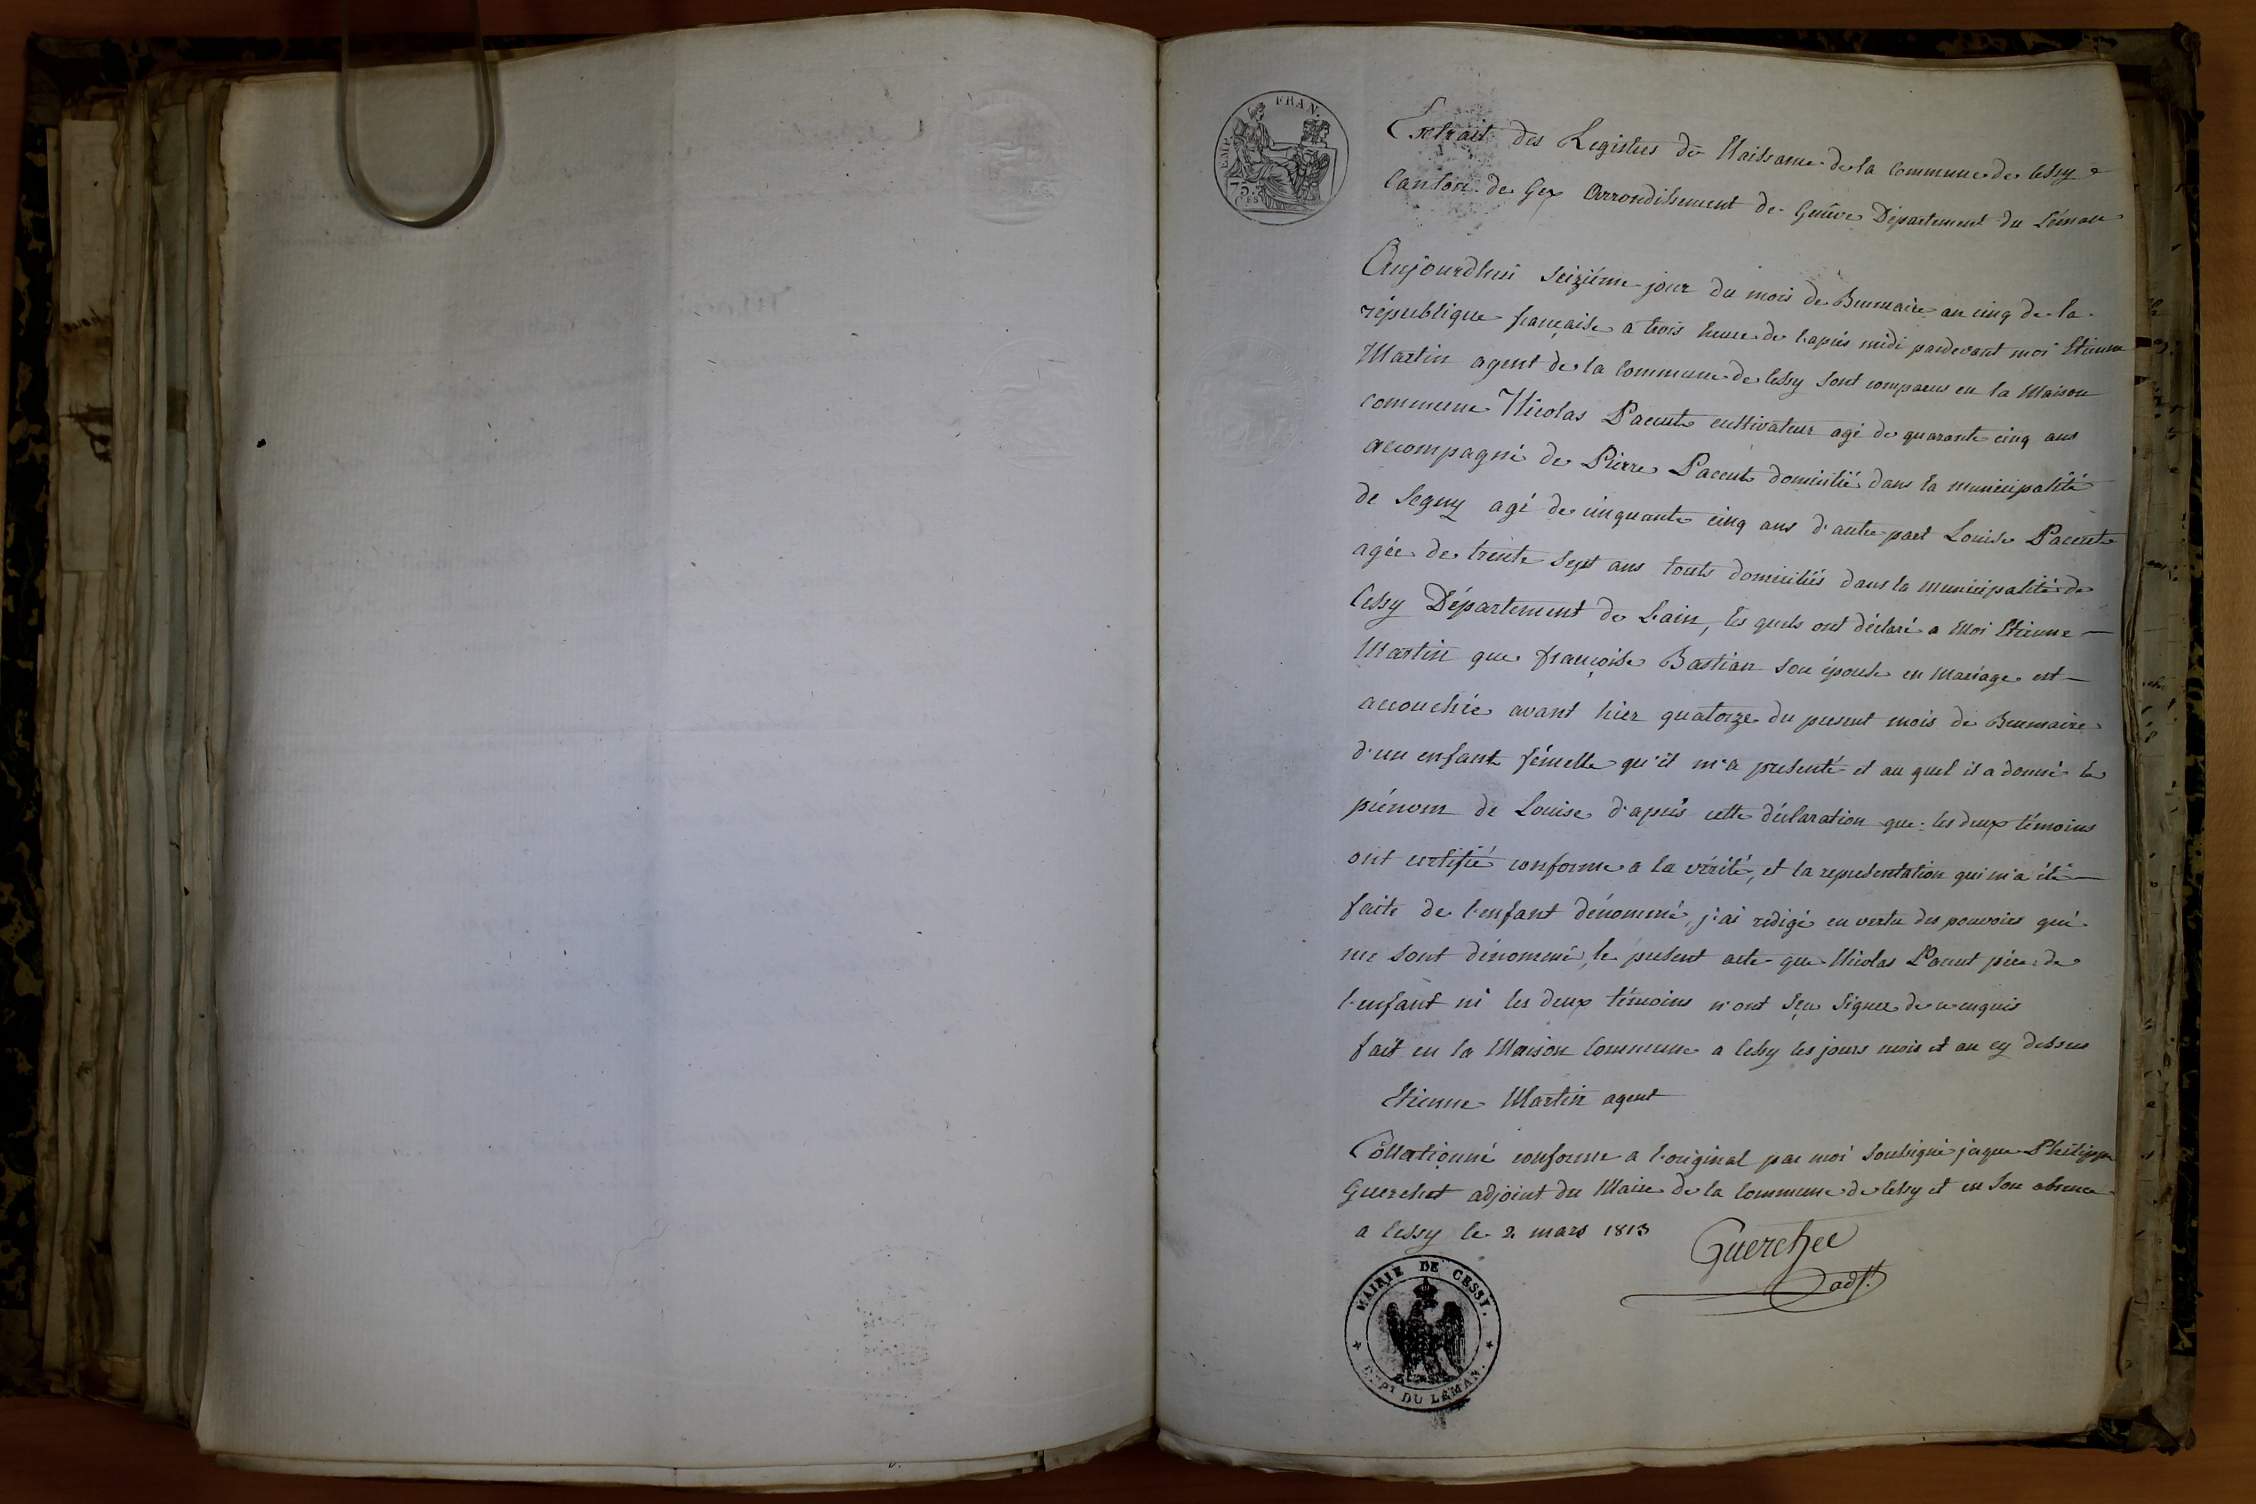 EMP. FRAN.
75.
CES
Extrait des Registres de Naissance de la Commune de Cessy
Canton de Gex Arrondissement de Genève Département du Léman
Aujourdhui seizième jour du mois de Brumaire an cinq de la
république française a trois heure de l'après midi pardevant moi Etienne
Martin agent de la Commune de Cessy sont comparus en la Maison
commune Nicolas Paccut cultivateur agé de quarante cinq ans
accompagné de Pierre Paccut domicilié dans la municipalité
de Segny agé de cinquante cinq ans d'autre part Louise Paccut
agée de trente sept ans touts domiciliés dans la municipalité de
Cessy Département de L'ain, les quels ont déclaré a Moi Etienne
Martin que françoise Bastian son épouse en Mariage est
accouchée avant hier quatorze du present mois de Brumaire
d'un enfant fémelle qu'il m'a presenté et au quel il a donné le
prénom de Louise d'après cette déclaration que les deux témoins
ont certifié conforme a la vérité, et la representation qui m'a été
faite de l'enfant dénommé, j'ai redigé en vertu des pouvoirs qui
me sont dénommé, le présent acte que Nicolas Pacut père de
l'enfant ni les deux témoins n'ont sçu signer de ce enquis
fait en la Maison Commune a Cessy les jours mois et an cy dessus
Etienne Martin agent
Collationné conforme a l'original par moi soussigné jaque Philippe
Guerchet adjoint du Maire de la Commune de Cessy et en son absence
a Cessy le 2 mars 1813
Guerchet
adjt.
MAIRIE DE CESSY.
DÉPt DU LÉMAN.